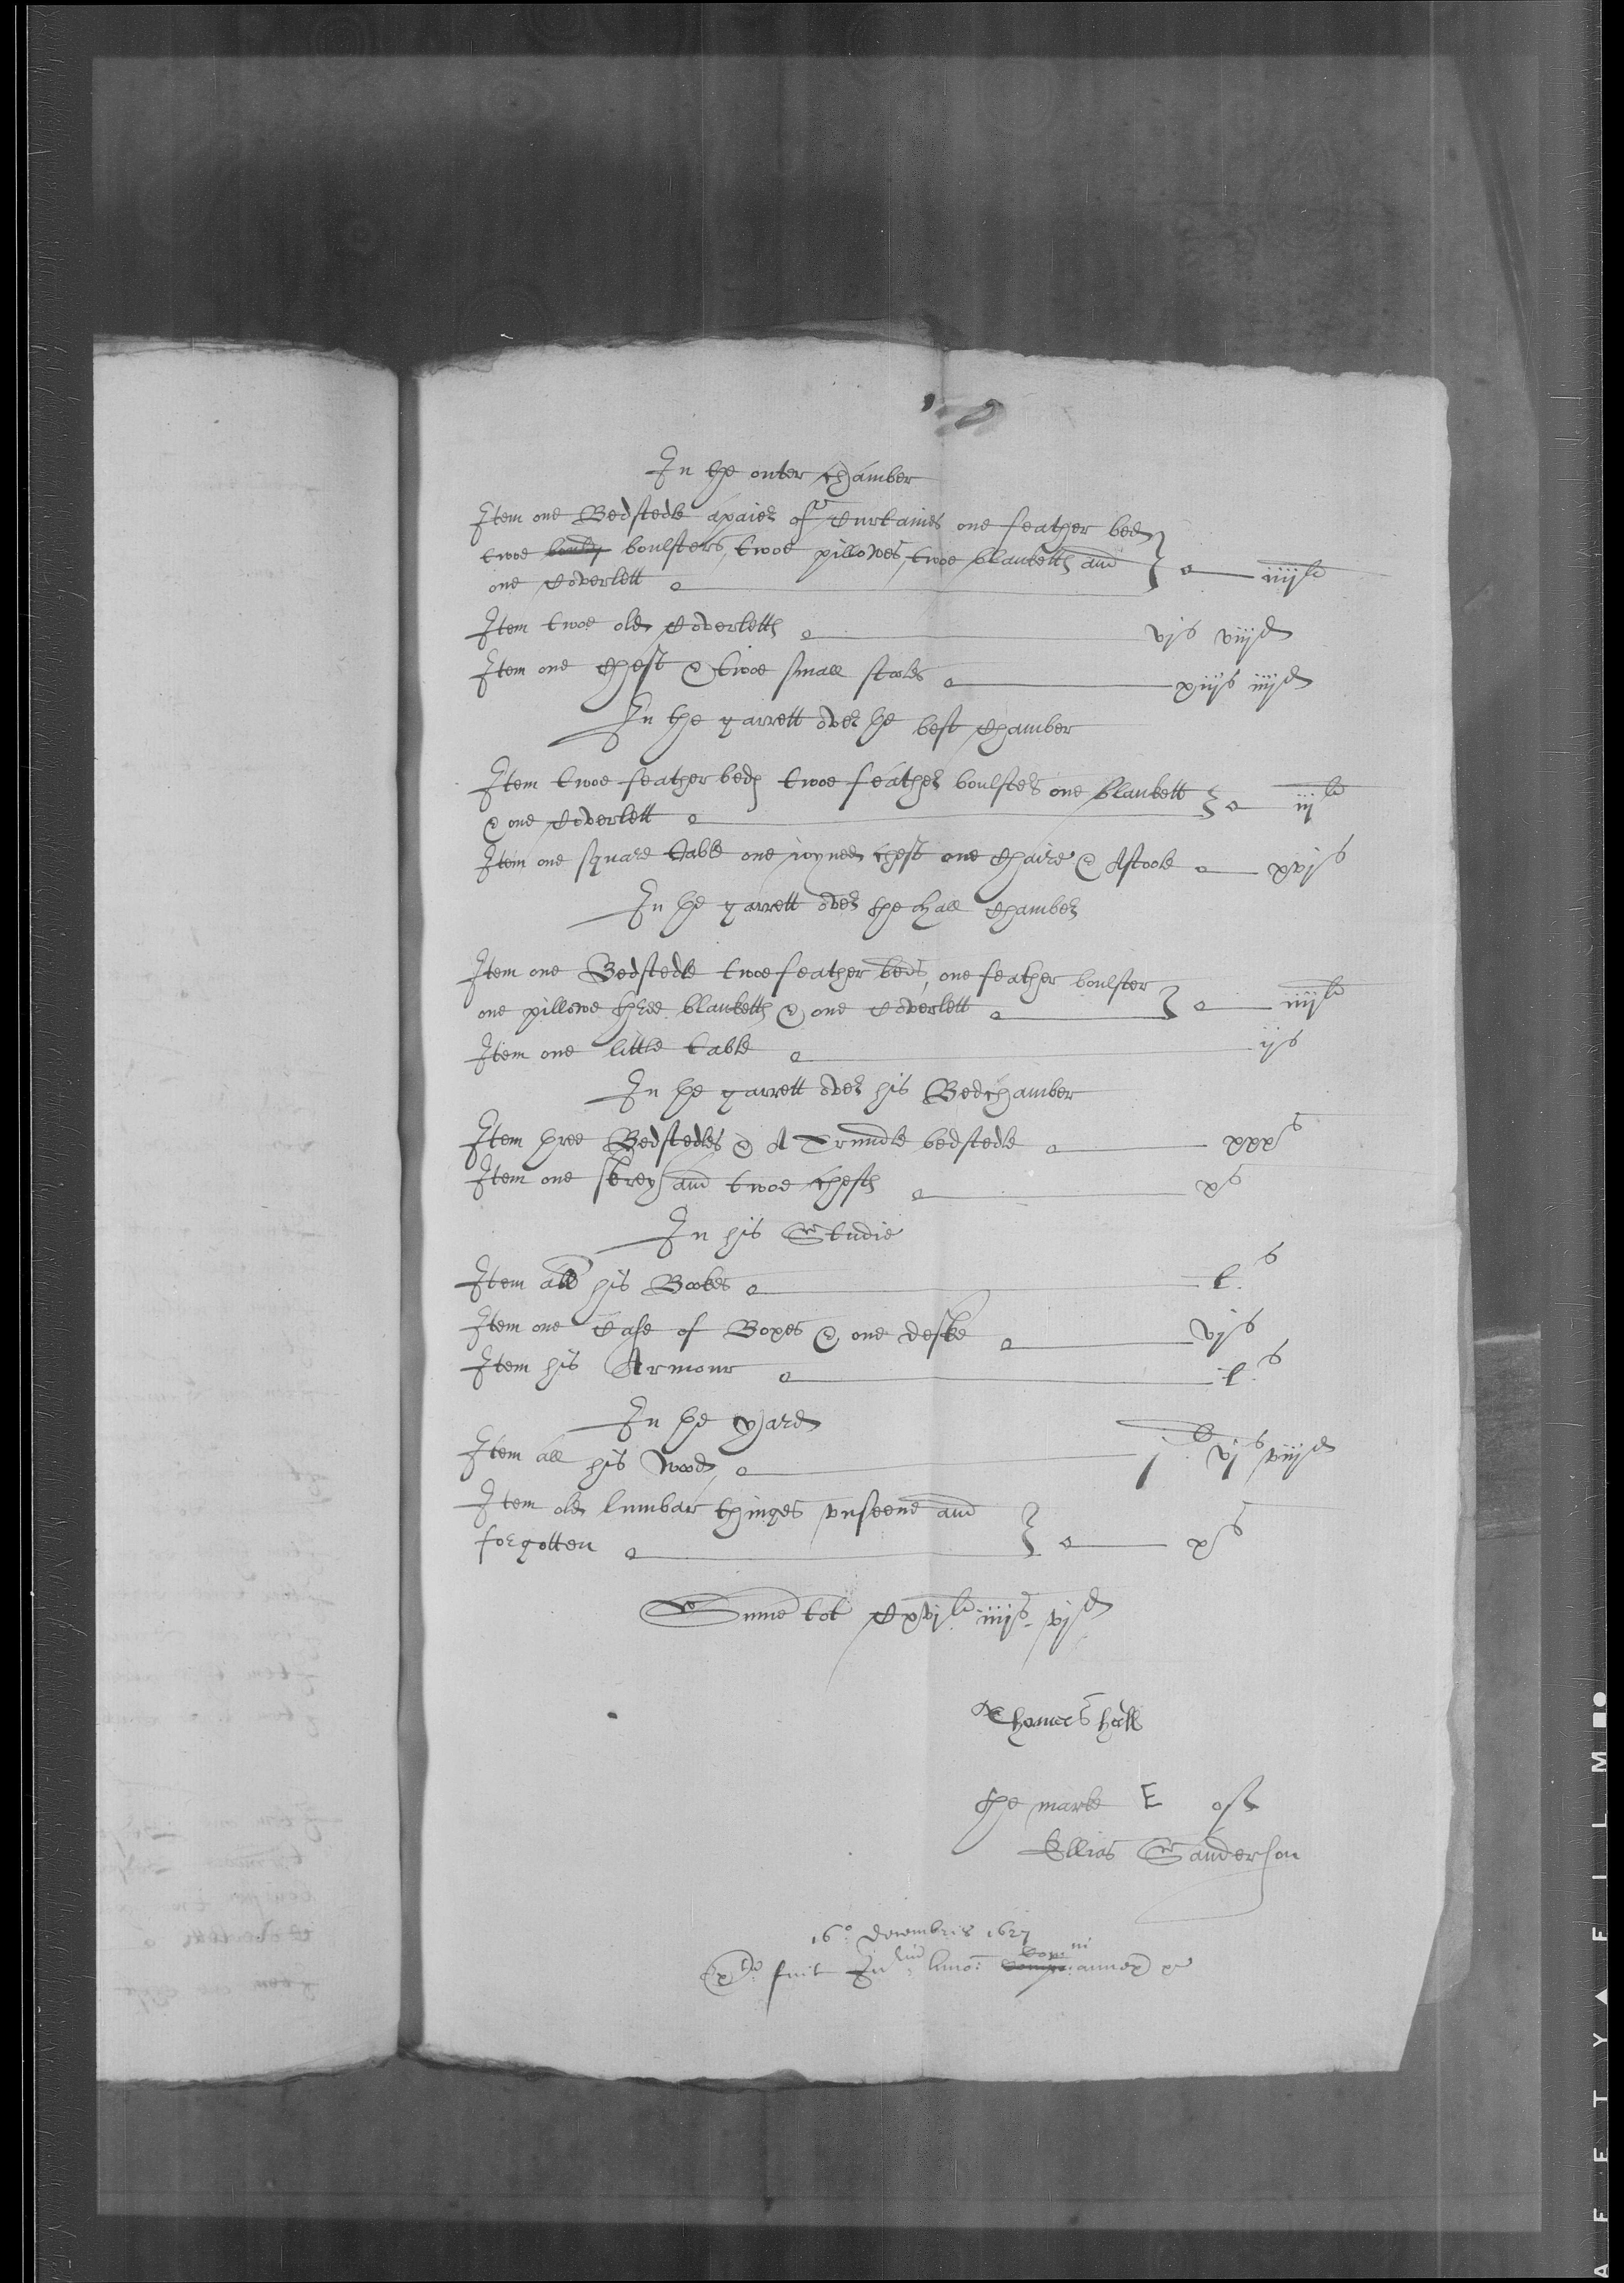 In the outer Chamber
Item one Bedstedle a paier of Curtaines one feather bed
twoe boulsters, twoe pillowes, twoe blanketts and
one Coverlett iiijli
Item twoe old Coverletts vjs viijd
Item one Chest & twoe small stooles xiijs iiijd
In the garrett over the best Chamber
Item twoe feather beds twoe feather boulsters one blankett
& one Coverlett iijli
Item one square table one joyned chest one Chaire & A stoole xvjs
In the garrett over the hall Chamber
Item one Bedstedle twoe feather beds, one feather boulster
one pillowe three blanketts & one Coverlett iiijli
Item one little table ijs
In the garrett over his Bedchamber
Item three Bedstedles & A Trundle bedstedle xxxs
Item one and twoe chests xs
In his Studie
Item all his Bookes ls
Item one Case of Boxes & one deske vjs
Item his Armour ls
In the yard
Item all his wood jli vjs viijd
Item old lumbar thinges unseene and
forgotten xs
Sume tot Cxvjli iiijs vjd
Thomas hall
the marke E of
Ellias Sanderson
16o Decembris 1627
fuit annex
SAFETY FILM